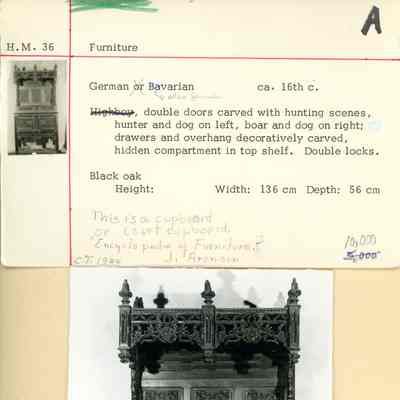 A
H.M. 36 Furniture
German or Bavarian ca. 16th c.
Highboy, double doors carved with hunting scenes,
hunter and dog on left, boar and dog on right;
drawers and overhang decoratively carved,
hidden compartment in top shelf. Double locks.
Black oak
Height: Width: 136 cm Depth: 56 cm
This is a cupboard
or Court cupboard,
"Encyclopedia of Furniture"
J. Aronson
10,000
5,000